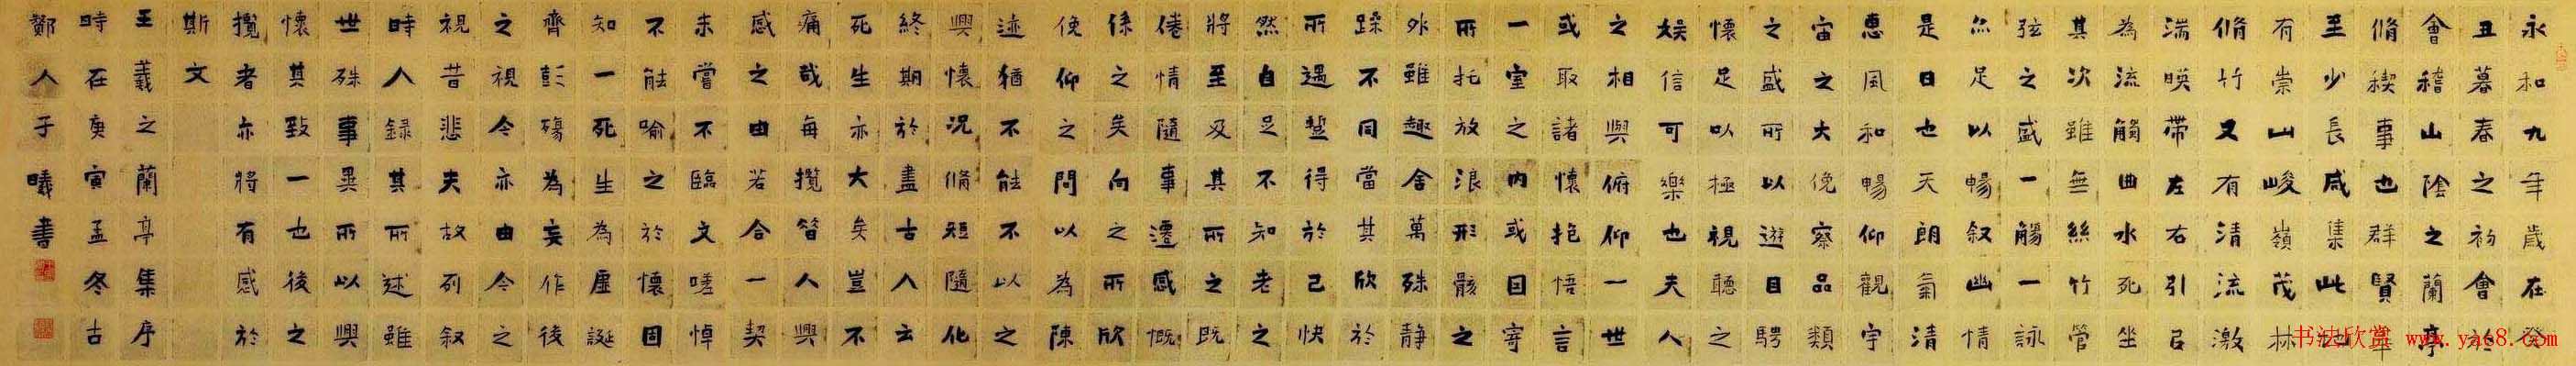 永和九年歲在癸
丑暮春之初會於
會稽山陰之蘭亭
脩稧事也群賢畢
至少長咸集此地
有崇山峻嶺茂林
脩竹又有清流激
湍暎帶左右引以
為流觴曲水列坐
其次雖無絲竹管
弦之盛一觴一詠
亦足以暢叙幽情
是日也天朗氣清
惠風和暢仰觀宇
宙之大俛察品類
之盛所以遊目騁
懷足以極視聽之
娛信可樂也夫人
之相與俯仰一世
或取諸懷抱悟言
一室之內或因寄
所托放浪形骸之
外雖趣舍萬殊静
躁不同當其欣於
所遇蹔得於己快
然自足不知老之
將至及其所之既
倦情隨事遷感慨
係之矣向之所欣
俛仰之間以為陳
迹猶不能不以之
興懷況脩短隨化
終期於盡古人云
死生亦大矣豈不
痛哉每攬昔人興
感之由若合一契
未嘗不臨文嗟悼
不能喻之於懷固
知一死生為虛誕
齊彭殤為妄作後
之視今亦由今之
視昔悲夫故列叙
時人錄其所述雖
世殊事異所以興
懷其致一也後之
攬者亦將有感於
斯文
王羲之蘭亭集序
時在庚寅孟冬古
鄭人于曦書
书法欣赏 www.yac8.com